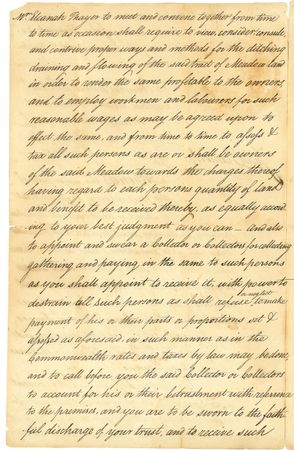 Mr. Elkanah Thayer to meet and convene together from time
to time as occasion shall require to view, consider, consult,
and contrive proper ways and methods for the ditching
draining and flowing of the said tract of Meadow land
in order to render the same profitable to the owners
and to employ workmen and labourers for such
reasonable wages as may be agreed upon to
effect the same, and from time to time to assess &
tax all such persons as are or shall be owners
of the said Meadow towards the charges thereof
having regard to each persons quantity of land
and benefit to be received thereby, as equally accord
ing to your best judgment as you can — and also
to appoint and swear a Collector or Collectors for collecting
gathering and paying in the same to such persons
as you shall appoint to receive it, with power to
distrain all such persons as shall refuse to make
payment of his or their parts or proportions set &
assessed as aforesaid in such manner as in the
Commonwealth rates and taxes by law may be done,
and to call before you the said Collector or Collectors
to account for his or their betrustment with reference
to the premises, and you are to be sworn to the faith
ful discharge of your trust, and to receive such